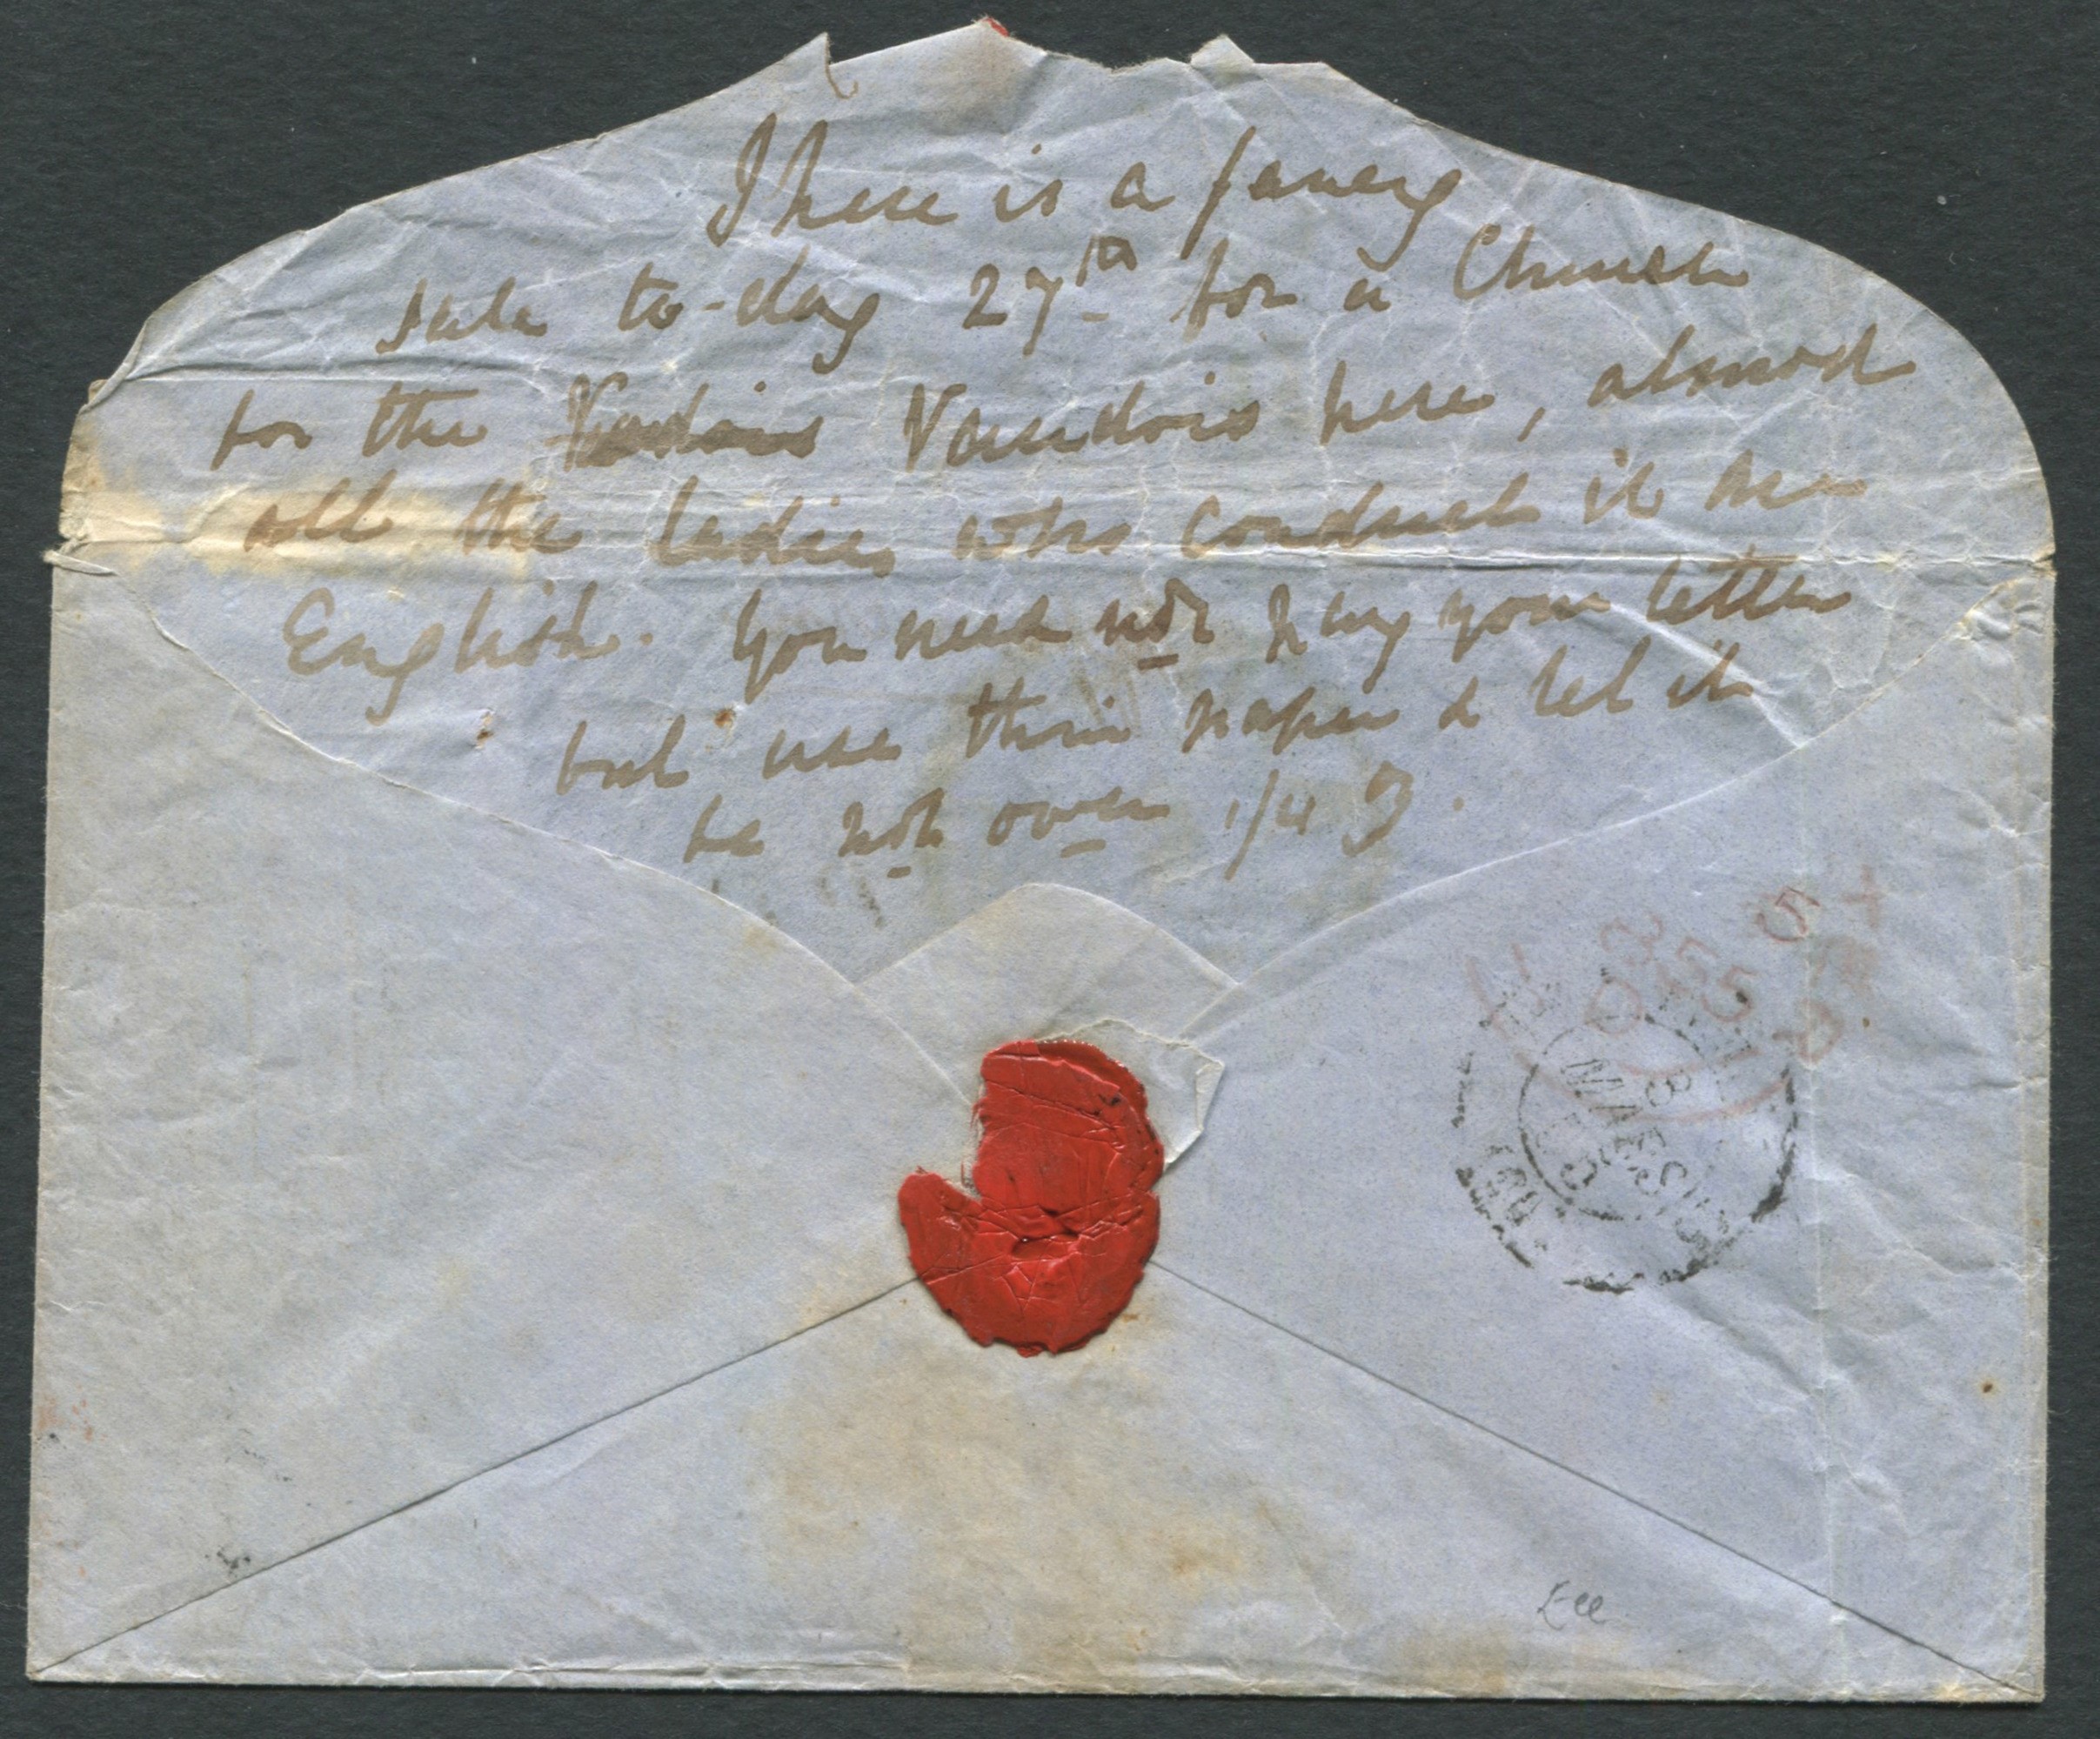 There is a fancy
sale to-day 27th for a Church
for the Vaudois Vaudois here, almost
all the ladies who conduct it are
English. You need not pay your letter
but use thin paper & let it
be not over 1/4 oz.
8
MA